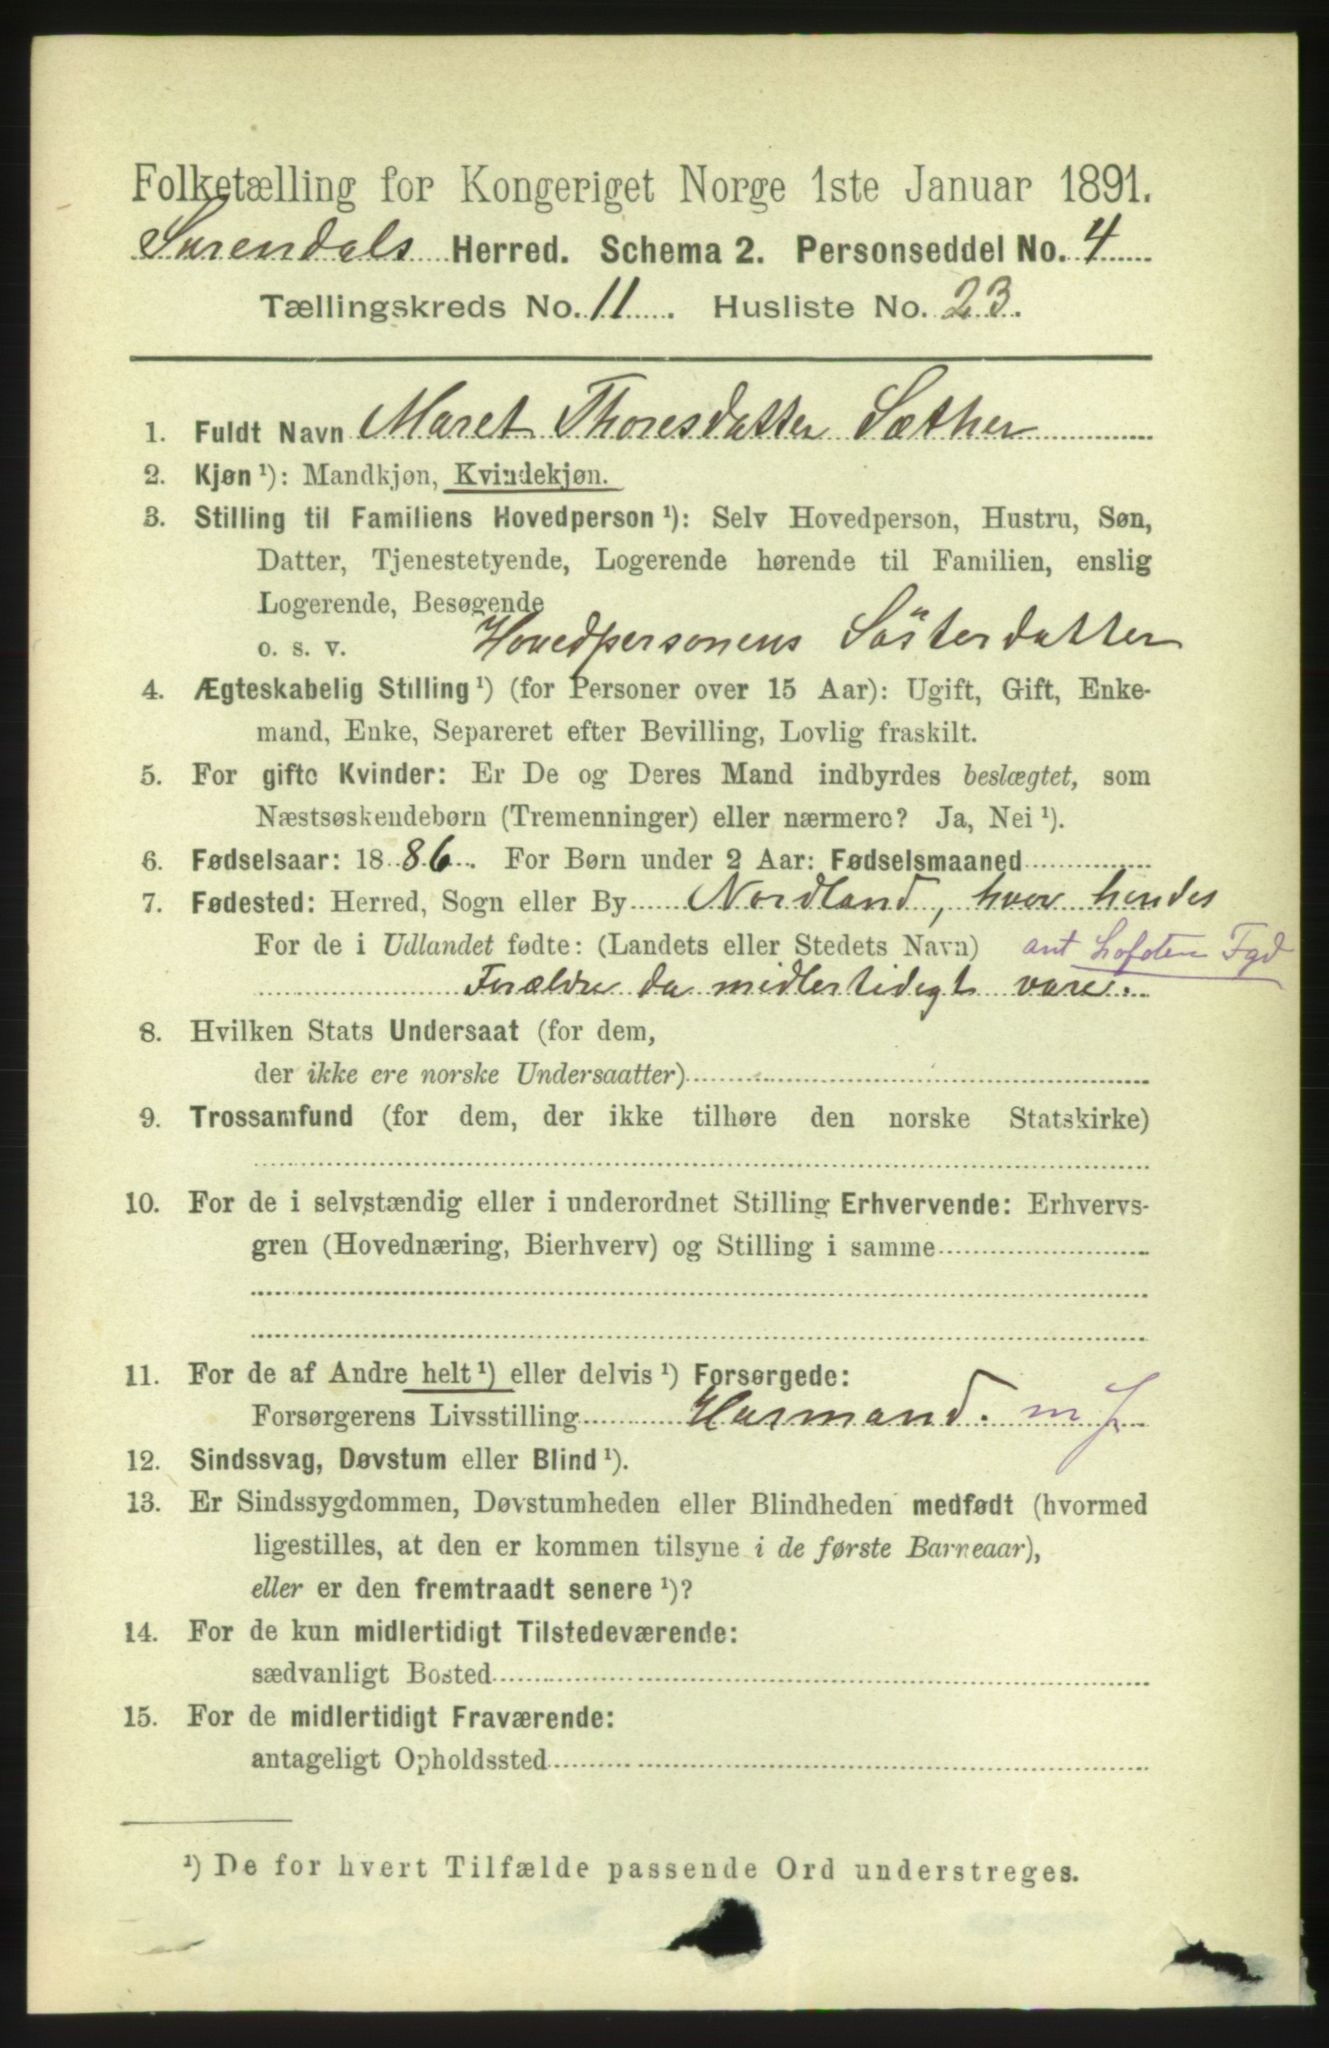 Folketælling for Kongeriget Norge 1ste Januar 1891.
Surendals Herred. Schema 2. Personseddel No. 4
Tællingskreds No. 11. Husliste No. 23.
1. Fuldt Navn Maret Thoresdatter Sæther
2. Kjøn¹): Mandkjøn, Kvindekjøn.
3. Stilling til Familiens Hovedperson¹): Selv Hovedperson, Hustru, Søn,
Datter, Tjenestetyende, Logerende hørende til Familien, enslig
Logerende, Besøgende
o. s. v. Hovedpersonens Søsterdatter
4. Ægteskabelig Stilling¹) (for Personer over 15 Aar): Ugift, Gift, Enke-
mand, Enke, Separeret efter Bevilling, Lovlig fraskilt.
5. For gifte Kvinder: Er De og Deres Mand indbyrdes beslægtet, som
Næstsøskendebørn (Tremenninger) eller nærmere? Ja, Nei¹).
6. Fødselsaar: 1886. For Børn under 2 Aar: Fødselsmaaned
7. Fødested: Herred, Sogn eller By Nordland, hvor hendes
For de i Udlandet fødte: (Landets eller Stedets Navn) ant Lofoten Fgd
Forældre da midlertidigt vare.
8. Hvilken Stats Undersaat (for dem,
der ikke ere norske Undersaatter)
9. Trossamfund (for dem, der ikke tilhøre den norske Statskirke)
10. For de i selvstændig eller i underordnet Stilling Erhvervende: Erhvervs-
gren (Hovednæring, Bierhverv) og Stilling i samme
11. For de af Andre helt¹) eller delvis¹) Forsørgede:
Forsørgerens Livsstilling Husmand. m J
12. Sindssvag, Døvstum eller Blind¹).
13. Er Sindssygdommen, Døvstumheden eller Blindheden medfødt (hvormed
ligestilles, at den er kommen tilsyne i de første Barneaar),
eller er den fremtraadt senere¹)?
14. For de kun midlertidigt Tilstedeværende:
sædvanligt Bosted
15. For de midlertidigt Fraværende:
antageligt Opholdssted
¹) De for hvert Tilfælde passende Ord understreges.